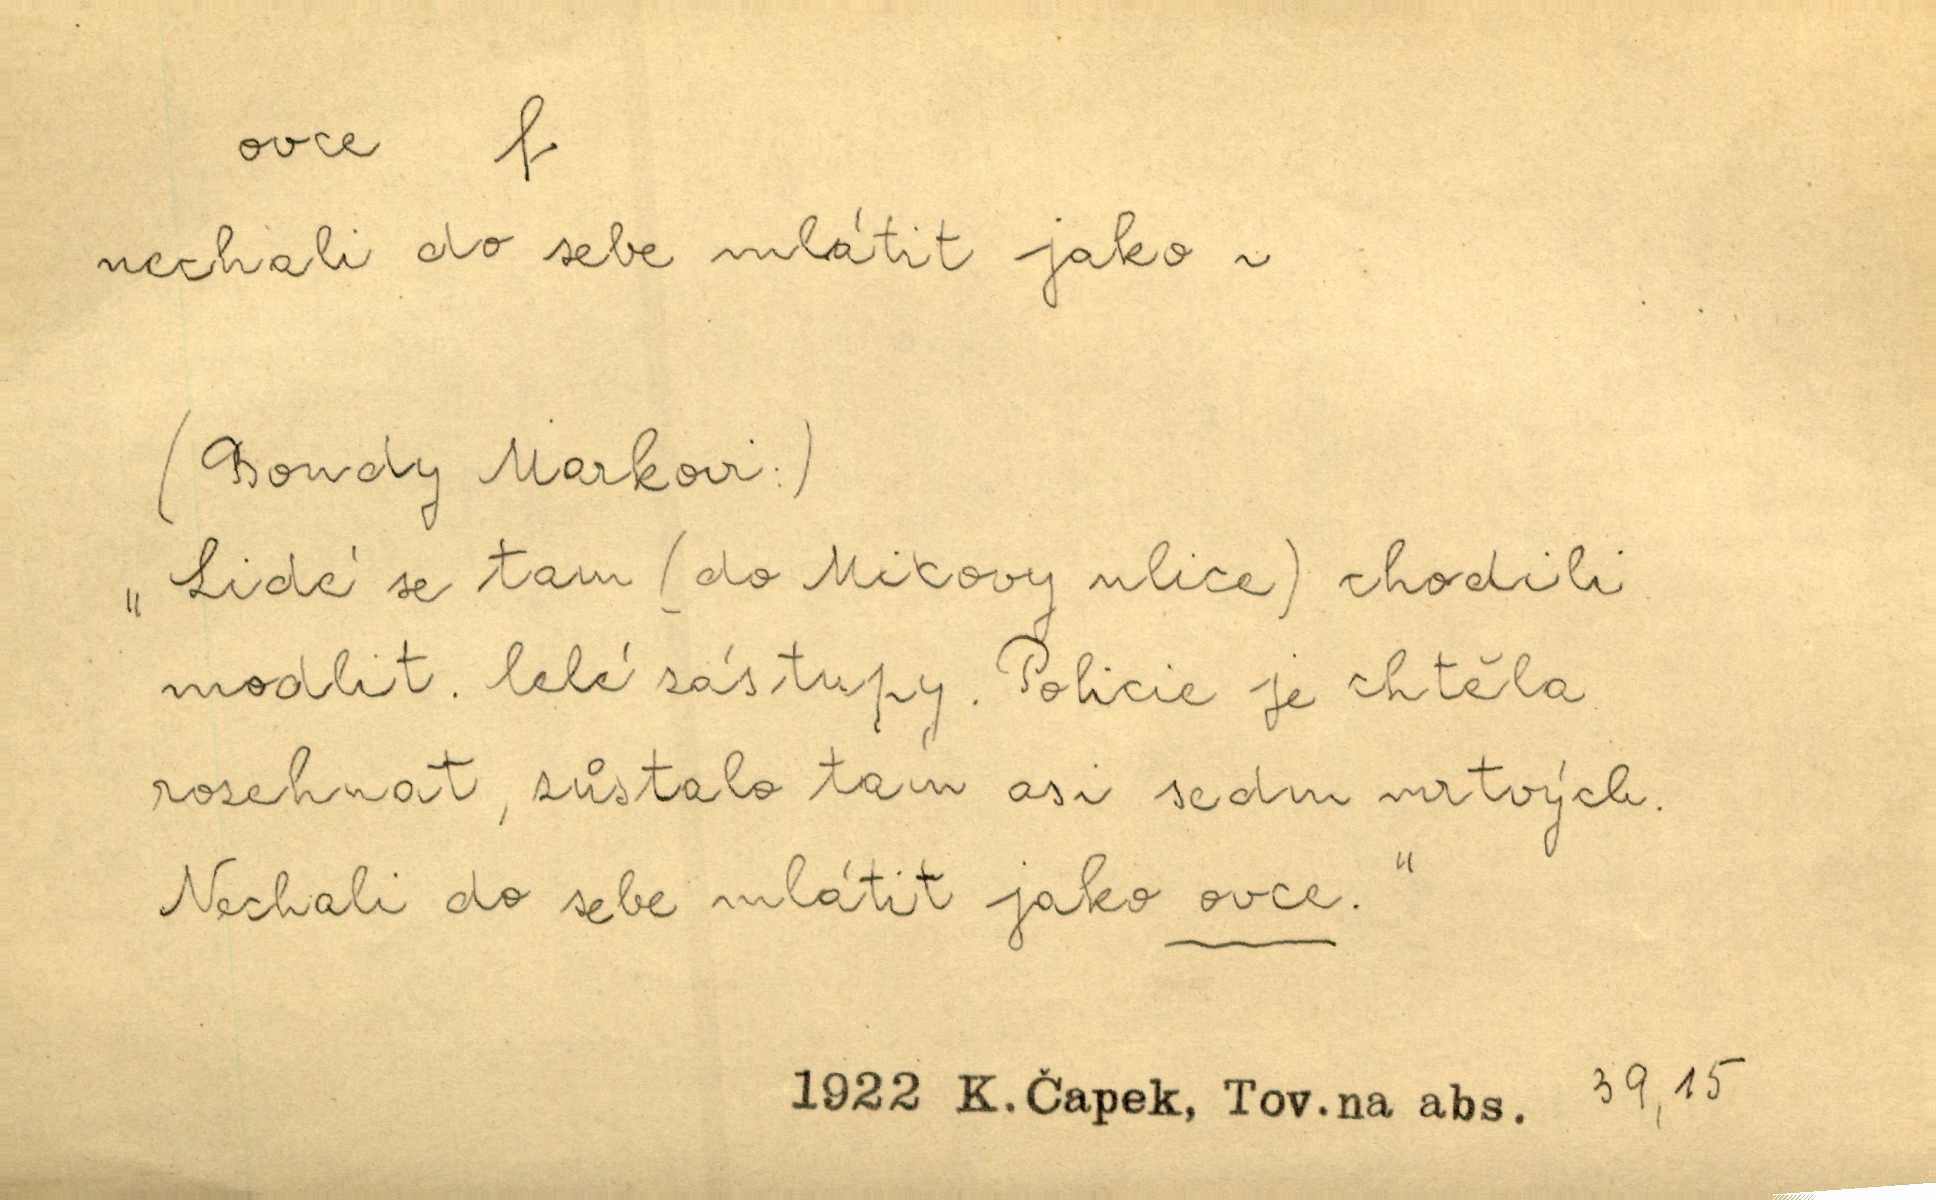 ovce f.
nechali do sebe mlátit jako ~
(Bondy Markovi:)
„Lidé se tam (do Mixovy ulice) chodili
modlit. Celé zástupy. Policie je chtěla
rozehnat, zůstalo tam asi sedm mrtvých.
Nechali do sebe mlátit jako ovce."
1922 K.Čapek, Tov.na abs. 39,15